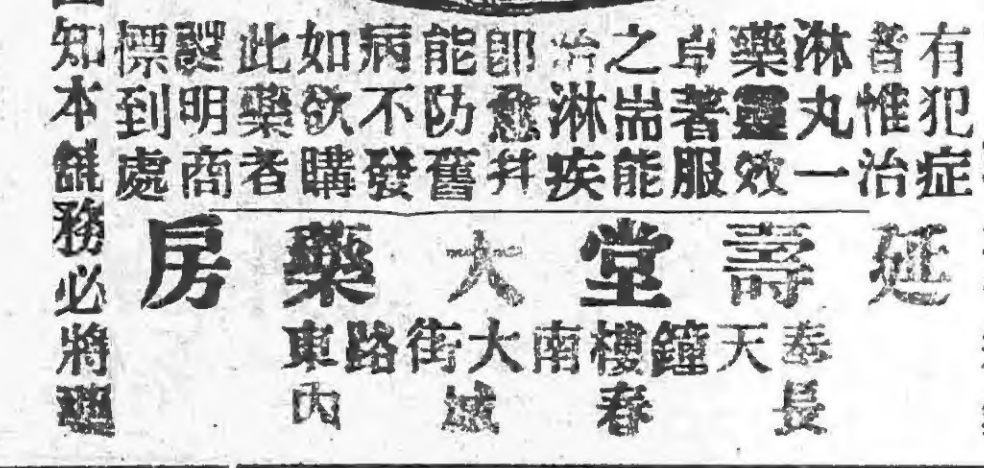 有犯症
皆惟治
淋丸一
藥靈效
卓著服
之耑能
治淋疾
即愈幷
能防舊
病不發
如欲購
此藥者
認明商
標到處
延壽堂大藥房
奉天鐘樓南大街路東
長春城內
知本舖務必將